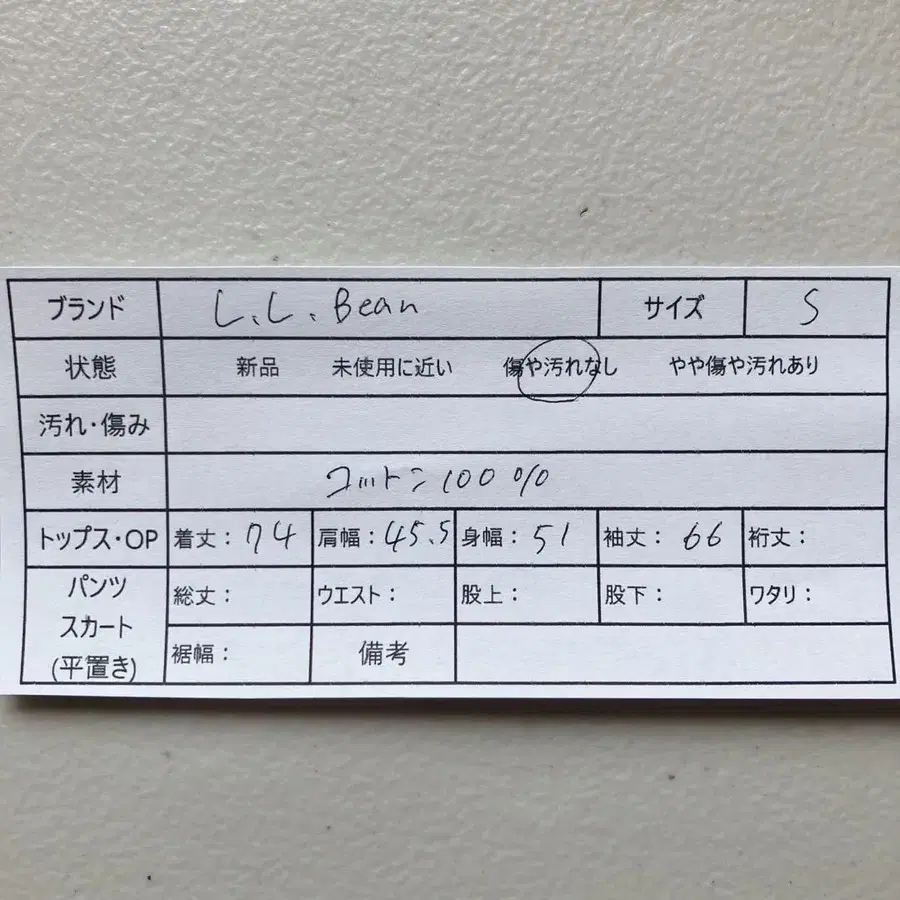 ブランド L.L.Bean サイズ S
状態 新品 未使用に近い 傷や汚れなし やや傷や汚れあり
汚れ・傷み
素材 コットン100%
トップス・OP 着丈：74 肩幅：45.5 身幅：51 袖丈：66 裄丈：
パンツ スカート (平置き) 総丈： ウエスト： 股上： 股下： ワタリ：
裾幅： 備考